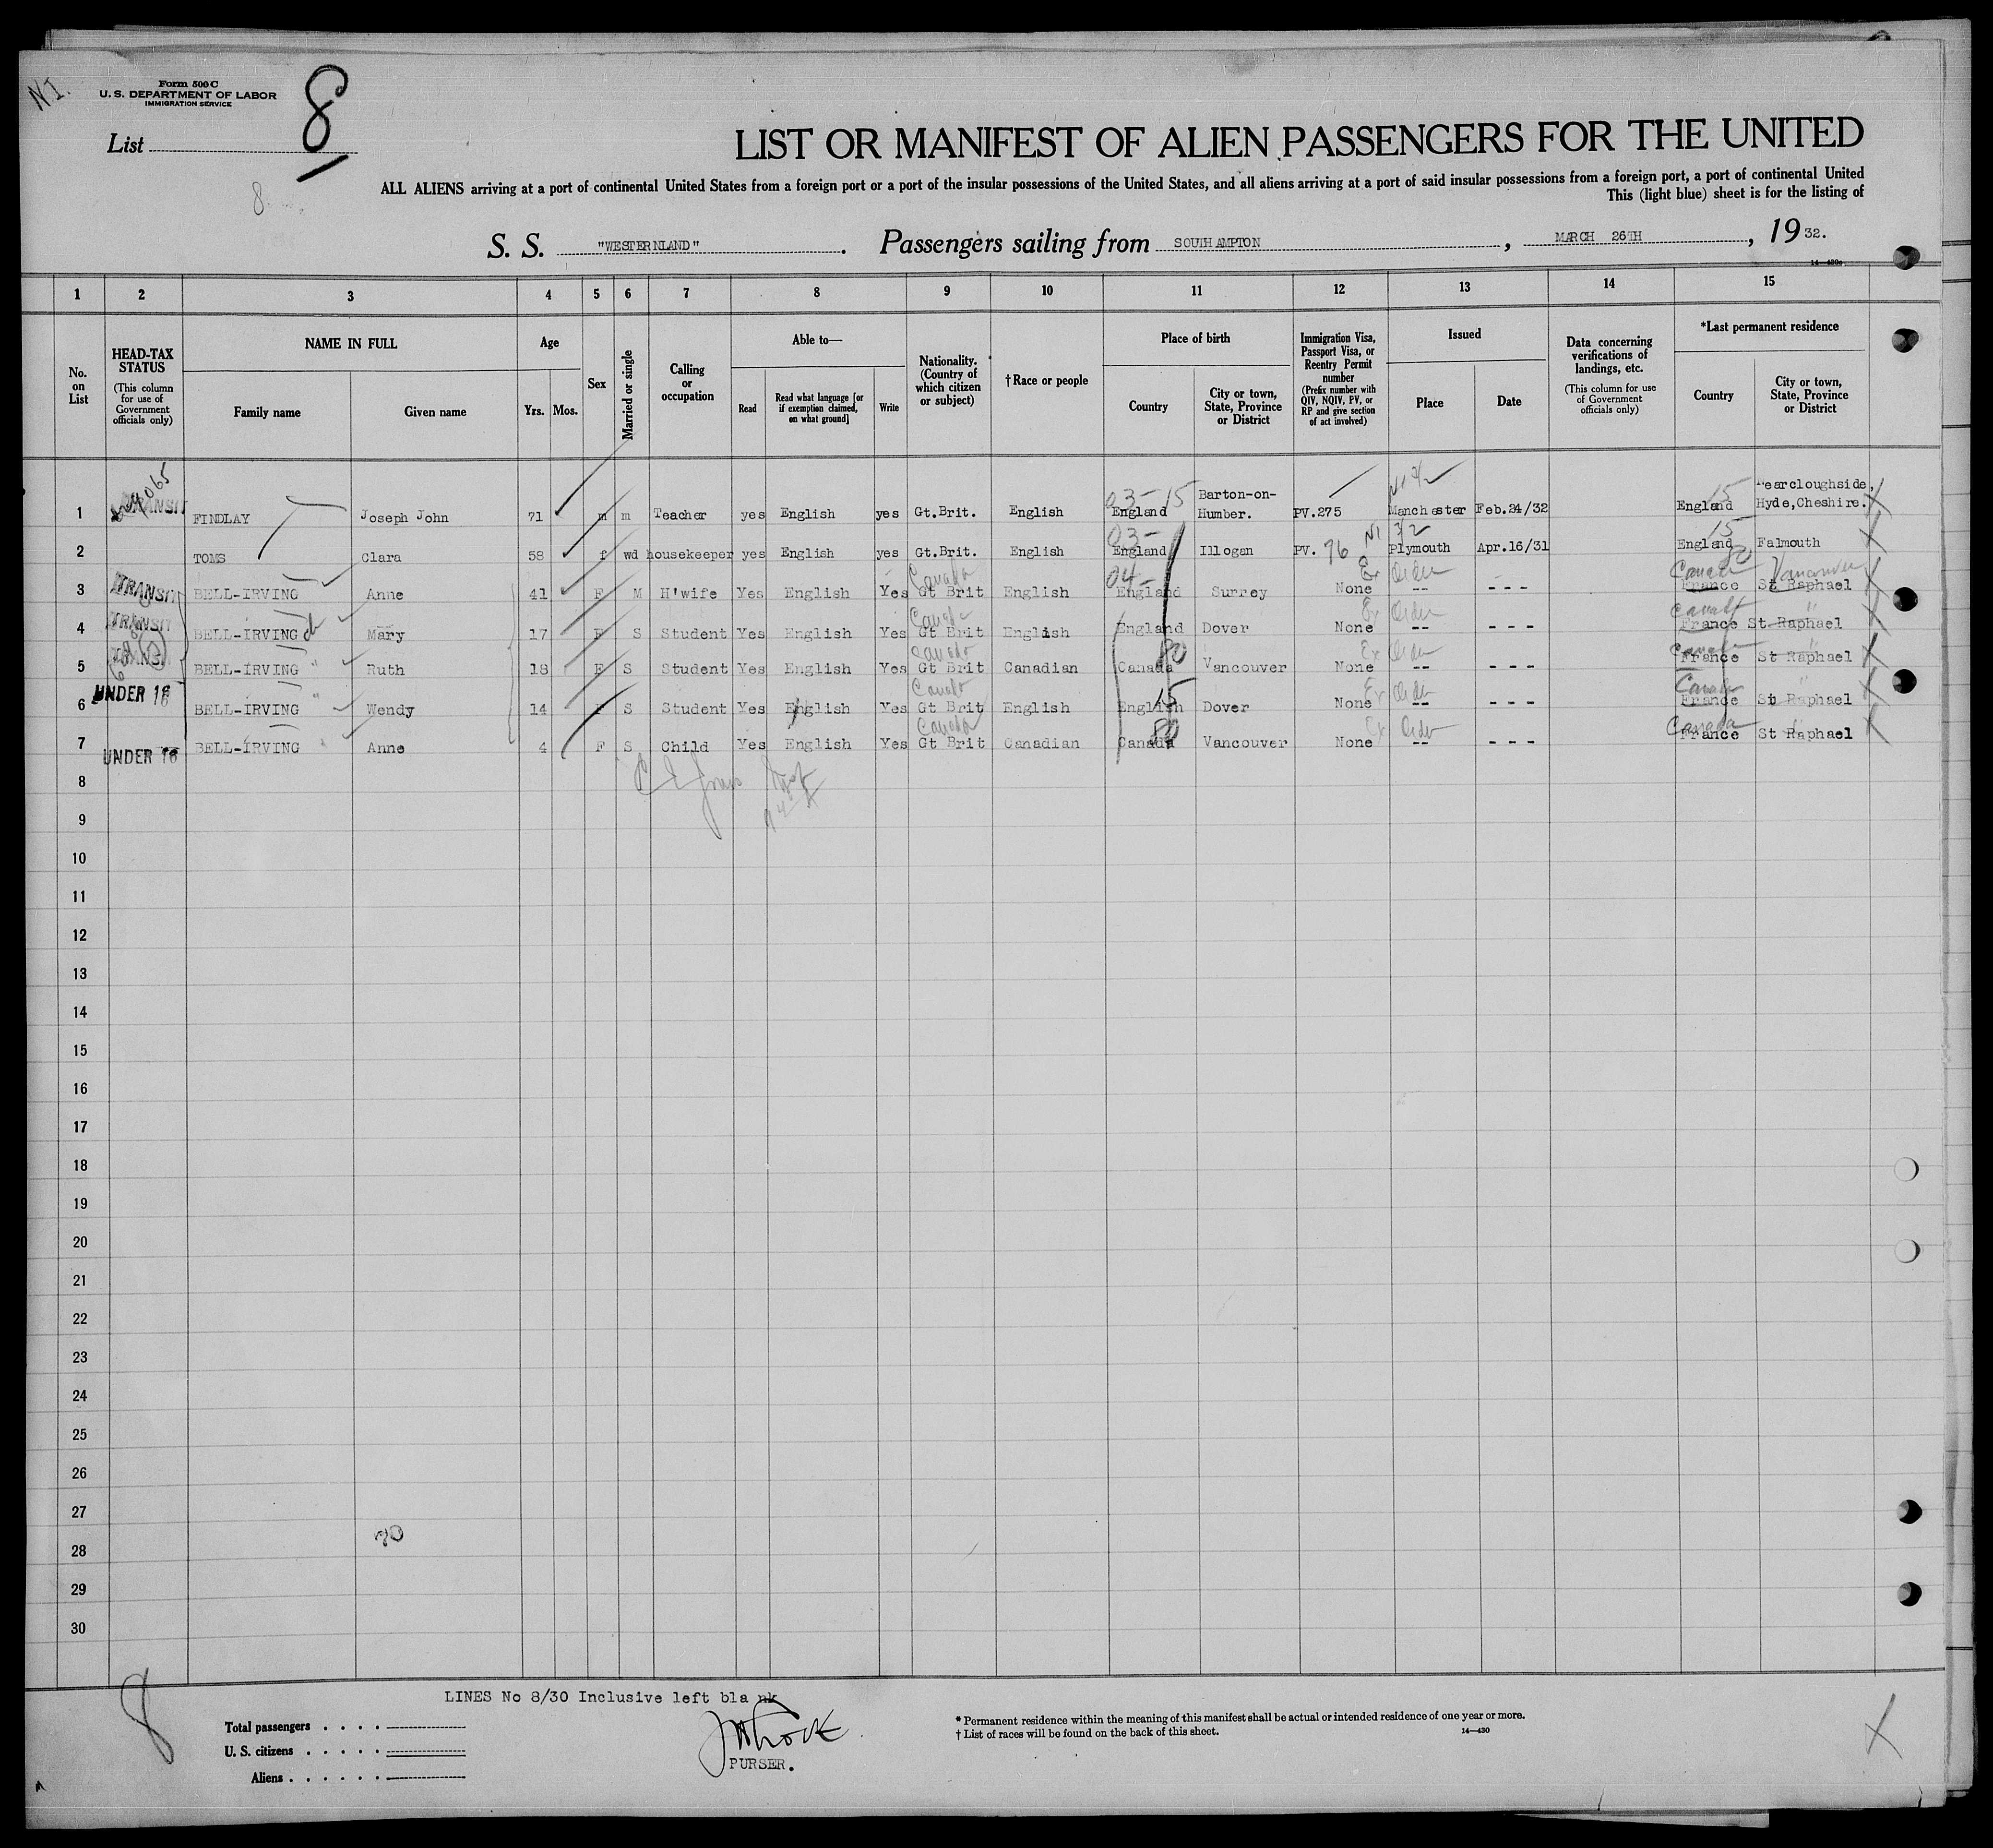 N.I.
Form 500 C
U. S. DEPARTMENT OF LABOR
IMMIGRATION SERVICE
List 8
8
LIST OR MANIFEST OF ALIEN PASSENGERS FOR THE UNITED
ALL ALIENS arriving at a port of continental United States from a foreign port or a port of the insular possessions of the United States, and all aliens arriving at a port of said insular possessions from a foreign port, a port of continental United
This (light blue) sheet is for the listing of
S. S. "WESTERNLAND". Passengers sailing from SOUTHAMPTON, MARCH 26TH, 19 32.
1 2 3 4 5 6 7 8 9 10 11 12 13 14 15
No. on List
HEAD-TAX STATUS (This column for use of Government officials only)
NAME IN FULL Family name Given name
Age Yrs. Mos.
Sex
Married or single
Calling or occupation
Able to— Read Read what language [or if exemption claimed, on what ground] Write
Nationality. (Country of which citizen or subject)
† Race or people
Place of birth Country City or town, State, Province or District
Immigration Visa, Passport Visa, or Reentry Permit number (Prefix number with QIV, NQIV, PV, or RP and give section of act involved)
Issued Place Date
Data concerning verifications of landings, etc. (This column for use of Government officials only)
*Last permanent residence Country City or town, State, Province or District
1 TRANSIT FINDLAY Joseph John 71 m m Teacher yes English yes Gt.Brit. English 03-15 England Barton-on-Humber. PV.275 Manchester Feb.24/32 15 England Hyde,Cheshire.
2 TOMS Clara 58 f wd housekeeper yes English yes Gt.Brit. English 03- England Illogan PV. 76 Plymouth Apr.16/31 15 England Falmouth
3 TRANSIT BELL-IRVING Anne 41 F M H'wife Yes English Yes Canada Gt Brit English 04- England Surrey None Ex Order -- - - - Canada France Vancouver St Raphael
4 TRANSIT BELL-IRVING Mary 17 F S Student Yes English Yes Canada Gt Brit English England Dover None Ex Order -- - - - Canada France " St Raphael
5 TRANSIT BELL-IRVING " Ruth 18 F S Student Yes English Yes Canada Gt Brit Canadian 80 Canada Vancouver None Ex Order -- - - - Canada France " St Raphael
6 UNDER 16 BELL-IRVING " Wendy 14 F S Student Yes English Yes Canada Gt Brit English 15 English Dover None Ex Order -- - - - Canada France " St Raphael
7 UNDER 16 BELL-IRVING " Anne 4 F S Child Yes English Yes Canada Gt Brit Canadian 80 Canada Vancouver None Ex Order -- - - - Canada France " St Raphael
8
9
10
11
12
13
14
15
16
17
18
19
20
21
22
23
24
25
26
27
28
29
30
LINES No 8/30 Inclusive left bla nk
8
Total passengers . . . .
U. S. citizens . . . . .
Aliens . . . . . .
PURSER.
* Permanent residence within the meaning of this manifest shall be actual or intended residence of one year or more.
† List of races will be found on the back of this sheet.
14—430